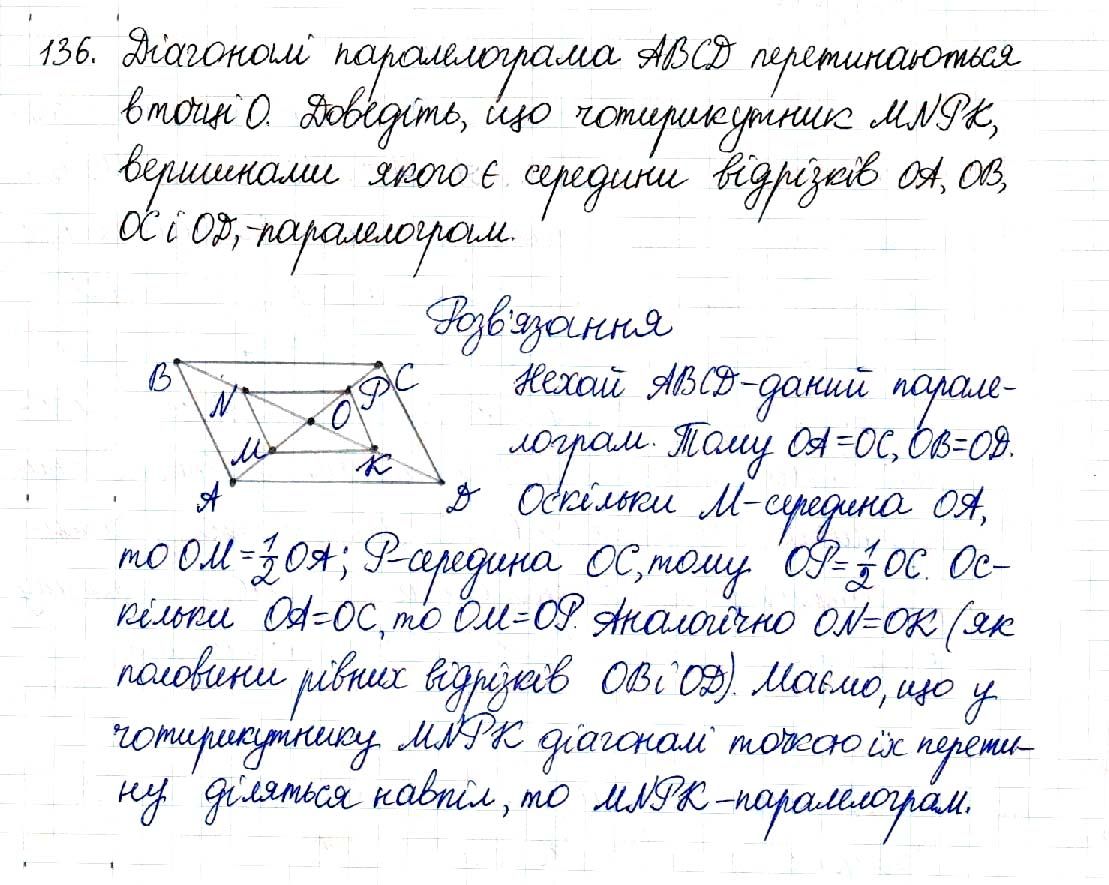 136. Діагоналі паралелограма ABCD перетинаються
в точці O. Доведіть, що чотирикутник MNPK,
вершинами якого є середини відрізків OA, OB,
OC і OD, - паралелограм.
Розв'язання
B
C
N
P
O
M
K
A
D
Нехай ABCD - даний парале-
лограм. Тому OA = OC, OB = OD.
Оскільки M - середина OA,
то OM = 1/2 OA; P - середина OC, тому OP = 1/2 OC. Ос-
кільки OA = OC, то OM = OP. Аналогічно ON = OK (як
половини рівних відрізків OB і OD). Маємо, що у
чотирикутнику MNPK діагоналі точкою їх перети-
ну діляться навпіл, то MNPK - паралелограм.